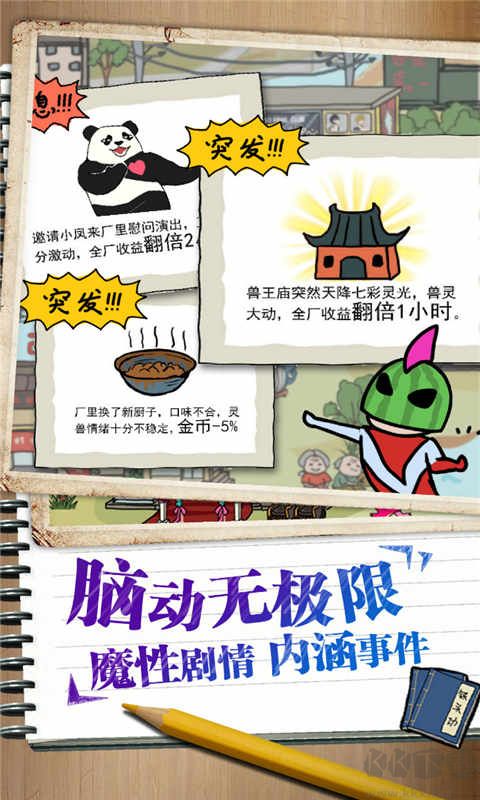 息!!!
邀请小凤来厂里慰问演出,
分激动,全厂收益翻倍2
突发!!!
兽王庙突然天降七彩灵光,兽灵
大动,全厂收益翻倍1小时。
突发!!!
厂里换了新厨子,口味不合,灵
兽情绪十分不稳定,金币-5%
脑动无极限
魔性剧情 内涵事件
铁头功